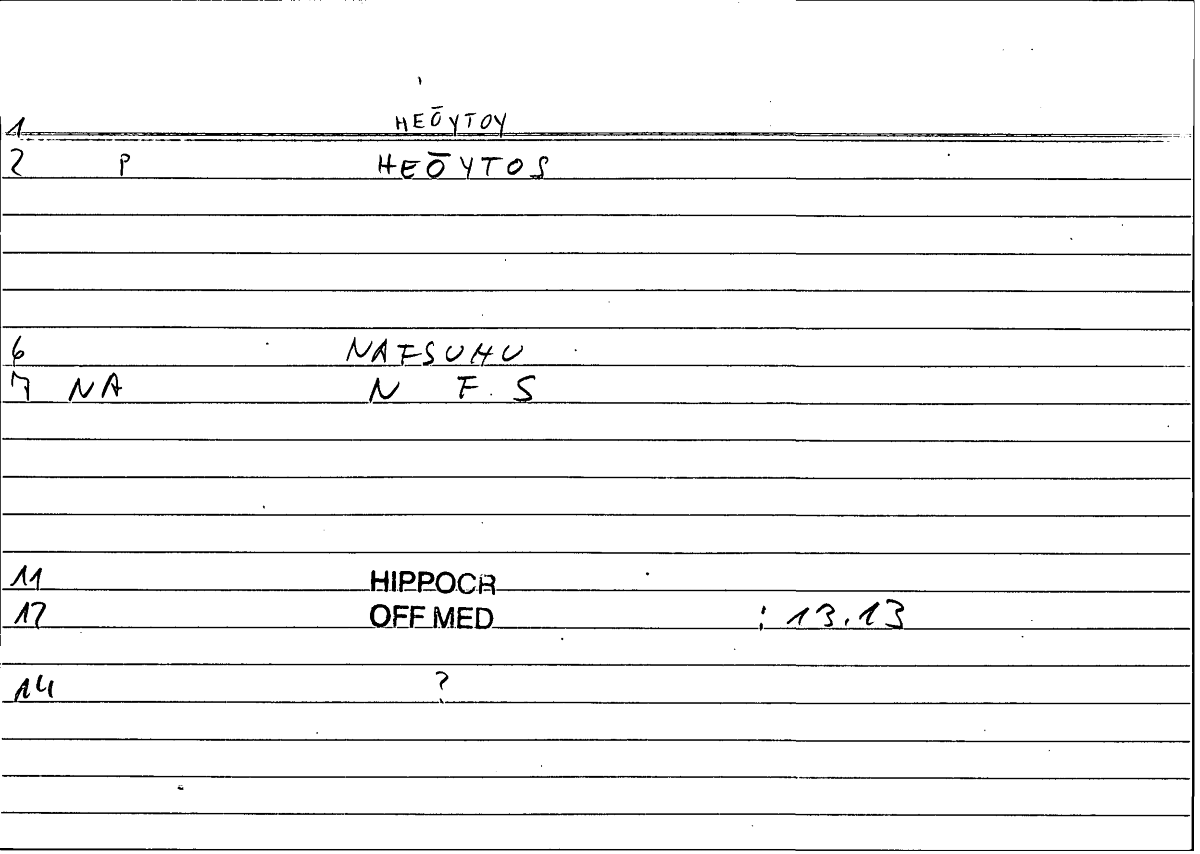 1 HEŌYTOY
2 P HEŌYTOS
6 NAFSUHU
7 NA N F. S
11 HIPPOCR
12 OFF MED : 13.13
14 ?